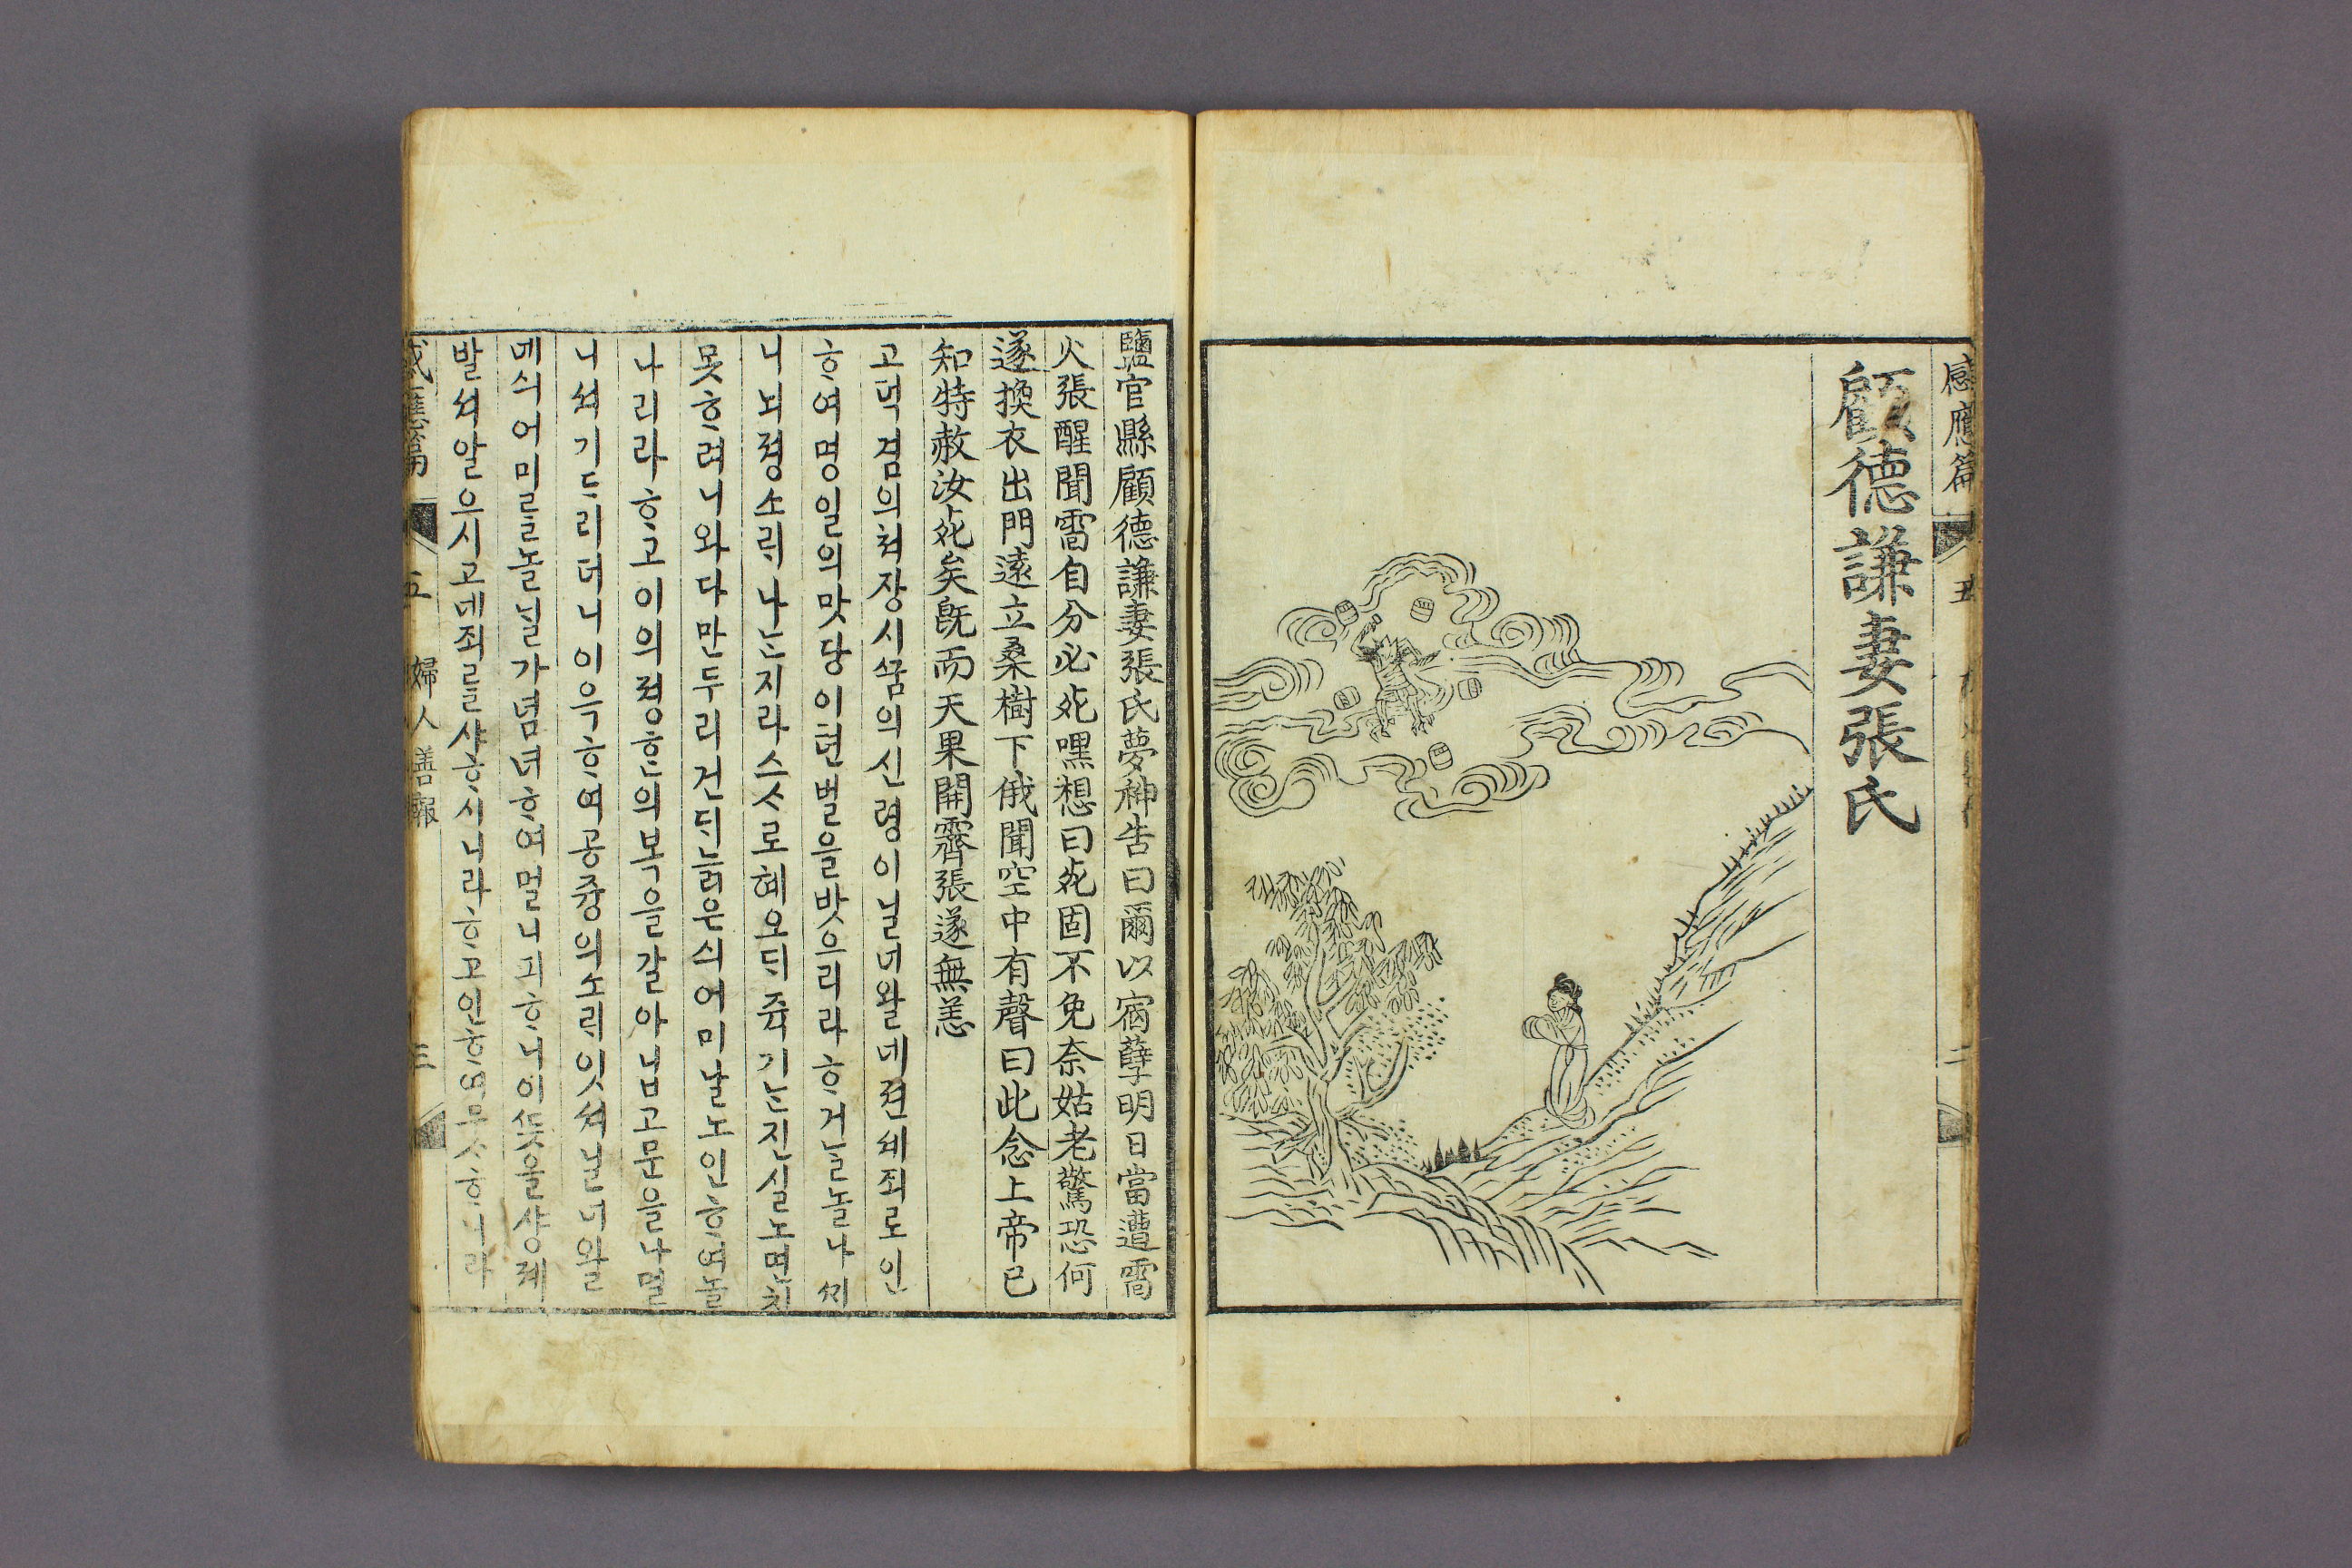 感應篇
五
二
顧德謙妻張氏
鹽官縣顧德謙妻張氏夢神告曰爾以宿孽明日當遭雷
火張醒聞雷自分必死嘿想曰死固不免奈姑老驚恐何
遂換衣出門遠立桑樹下俄聞空中有聲曰此念上帝已
知特赦汝死矣旣而天果開霽張遂無恙
고덕겸의쳐쟝시ᄭᅮᆷ의신령이닐너왈네젼셰죄로인
ᄒᆞ여명일의맛당이텬벌을밧으리라ᄒᆞ거ᄂᆞᆯ놀나ᄭᆡ
니뇌졍소ᄅᆡ나ᄂᆞᆫ지라스ᄉᆞ로혜오ᄃᆡ쥭기ᄂᆞᆫ진실노면치
못ᄒᆞ려니와다만두리건ᄃᆡ늙은싀어미날노인ᄒᆞ여놀
나리라ᄒᆞ고이의졍ᄒᆞᆫ의복을갈아닙고문을나멀
니셔기ᄃᆞ리더니이윽ᄒᆞ여공즁의소ᄅᆡ잇셔닐너왈
네싀어미ᄅᆞᆯ놀ᄂᆡᆯ가념녀ᄒᆞ여멀니피ᄒᆞ니이ᄯᅳᆺ을샹졔
발셔알으시고네죄ᄅᆞᆯ샤ᄒᆞ시니라ᄒᆞ고인ᄒᆞ여무ᄉᆞᄒᆞ니라
感應篇
五
婦人善報
三